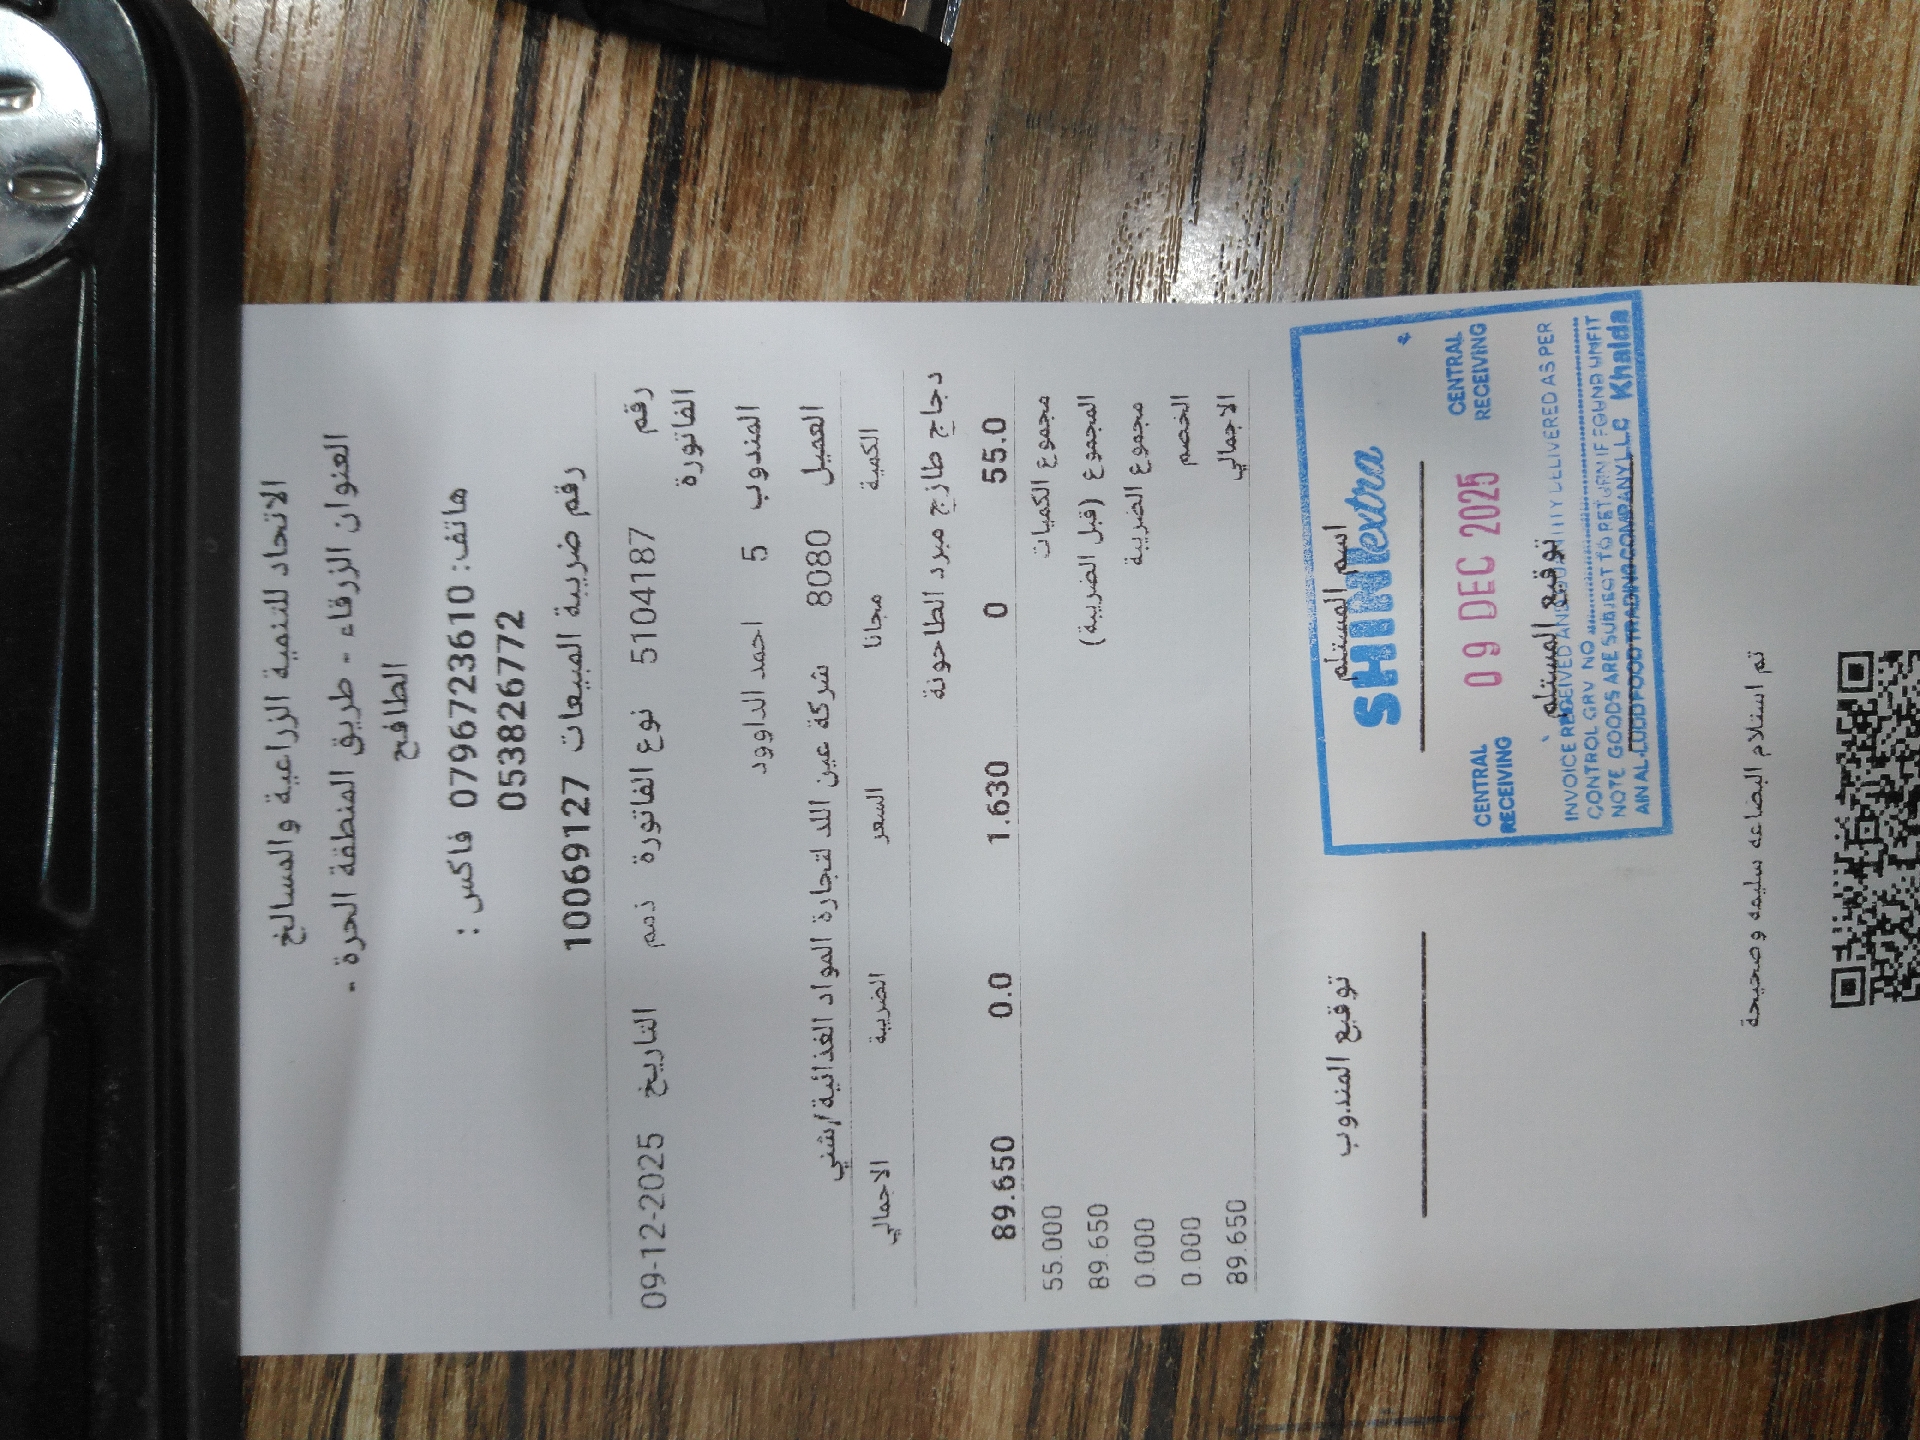 الاتحاد للتنمية الزراعية والمسالخ
العنوان الزرقاء - طريق المنطقة الحرة -
الطافح
هاتف: 0796723610 فاكس :
0538826772
رقم ضريبة المبيعات 10069127
رقم الفاتورة 5104187 نوع الفاتورة ذمم التاريخ 09-12-2025
المندوب 5 احمد الداوود
العميل 8080 شركة عين اللد لتجارة المواد الغذائية/شني
الكمية مجانا السعر الضريبة الاجمالي
دجاج طازج مبرد الطاحونة
55.0 0 1.630 0.0 89.650
مجموع الكميات 55.000
المجموع (قبل الضريبة) 89.650
مجموع الضريبة 0.000
الخصم 0.000
الاجمالي 89.650
اسم المستلم توقيع المندوب
SHINIextra
CENTRAL RECEIVING 09 DEC 2025 CENTRAL RECEIVING
توقيع المستلم
INVOICE RECEIVED AND QUANTITY DELIVERED AS PER
CONTROL GRV NO
NOTE GOODS ARE SUBJECT TO RETURN IF FOUND UNFIT
AIN AL-LUDD FOOD TRADING COMPANY LLC Khalda
تم استلام البضاعه سليمه وصحيحة